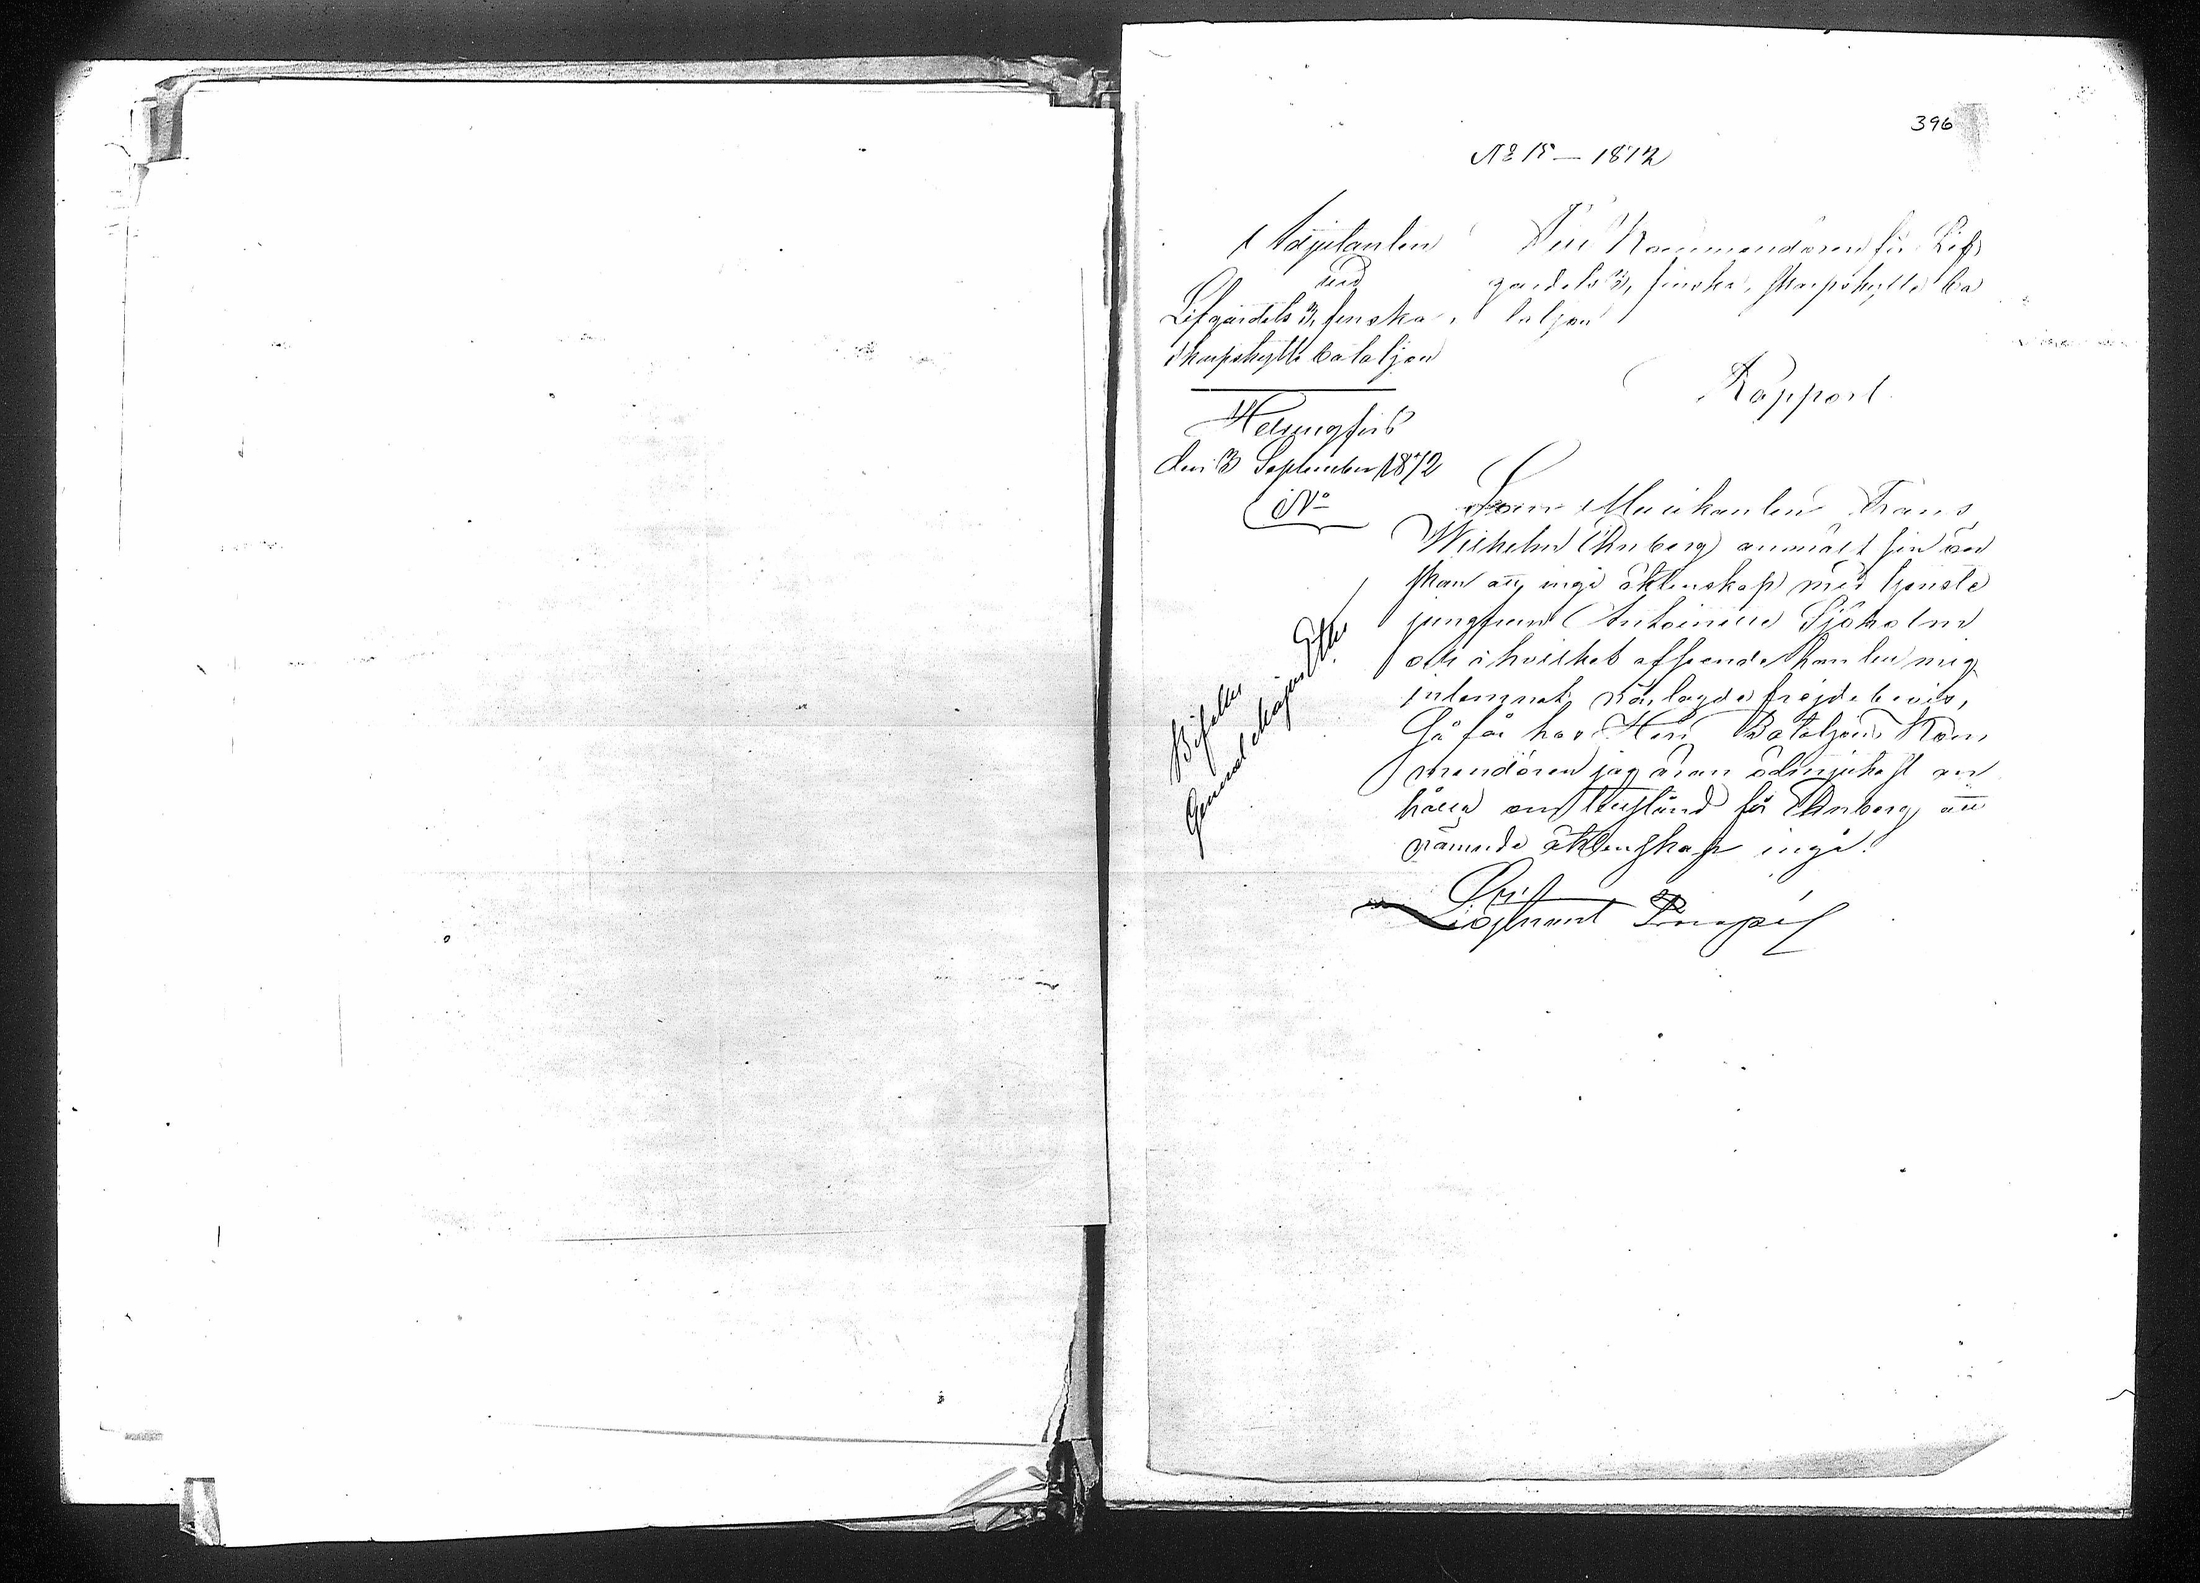 396
No 15 – 1872
Adjutanten
vid
Lifgardets 3, finska,
Skarpskytte bataljon
Helsingfors
den 3 September 1872
No
Till Kommendören för Lif
gardets 3, finska, Skarpskytte ba
taljon
Rapport
Som Musikanten Frans
Wilhelm Ehnberg anmält sin ön
skan att ingå äktenskap med tjenste
jungfrun Antoinette Sjöholm
och i hvilket afseende han till mig
inlemnat närlagde frejdebevis,
Så får hos Herr Bataljons Kom
mendören jag äran ödmjukast an
hålla om tillstånd för Ehnberg att
nämnde äktenskap ingå.
Löjtnant
Bifalles
General Major